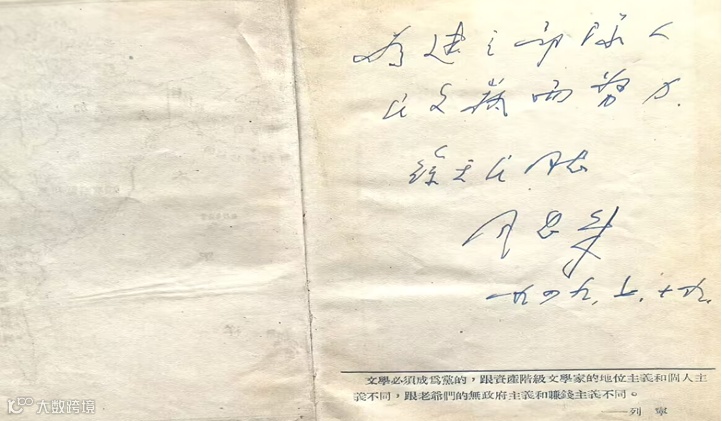 为建立部队人
民文艺而努力.
徐天民同志
周恩来
一九四九.七.十九.
文學必須成爲黨的，跟資產階級文學家的地位主義和個人主
義不同，跟老爺們的無政府主義和賺錢主義不同。
——列寧
大数跨境